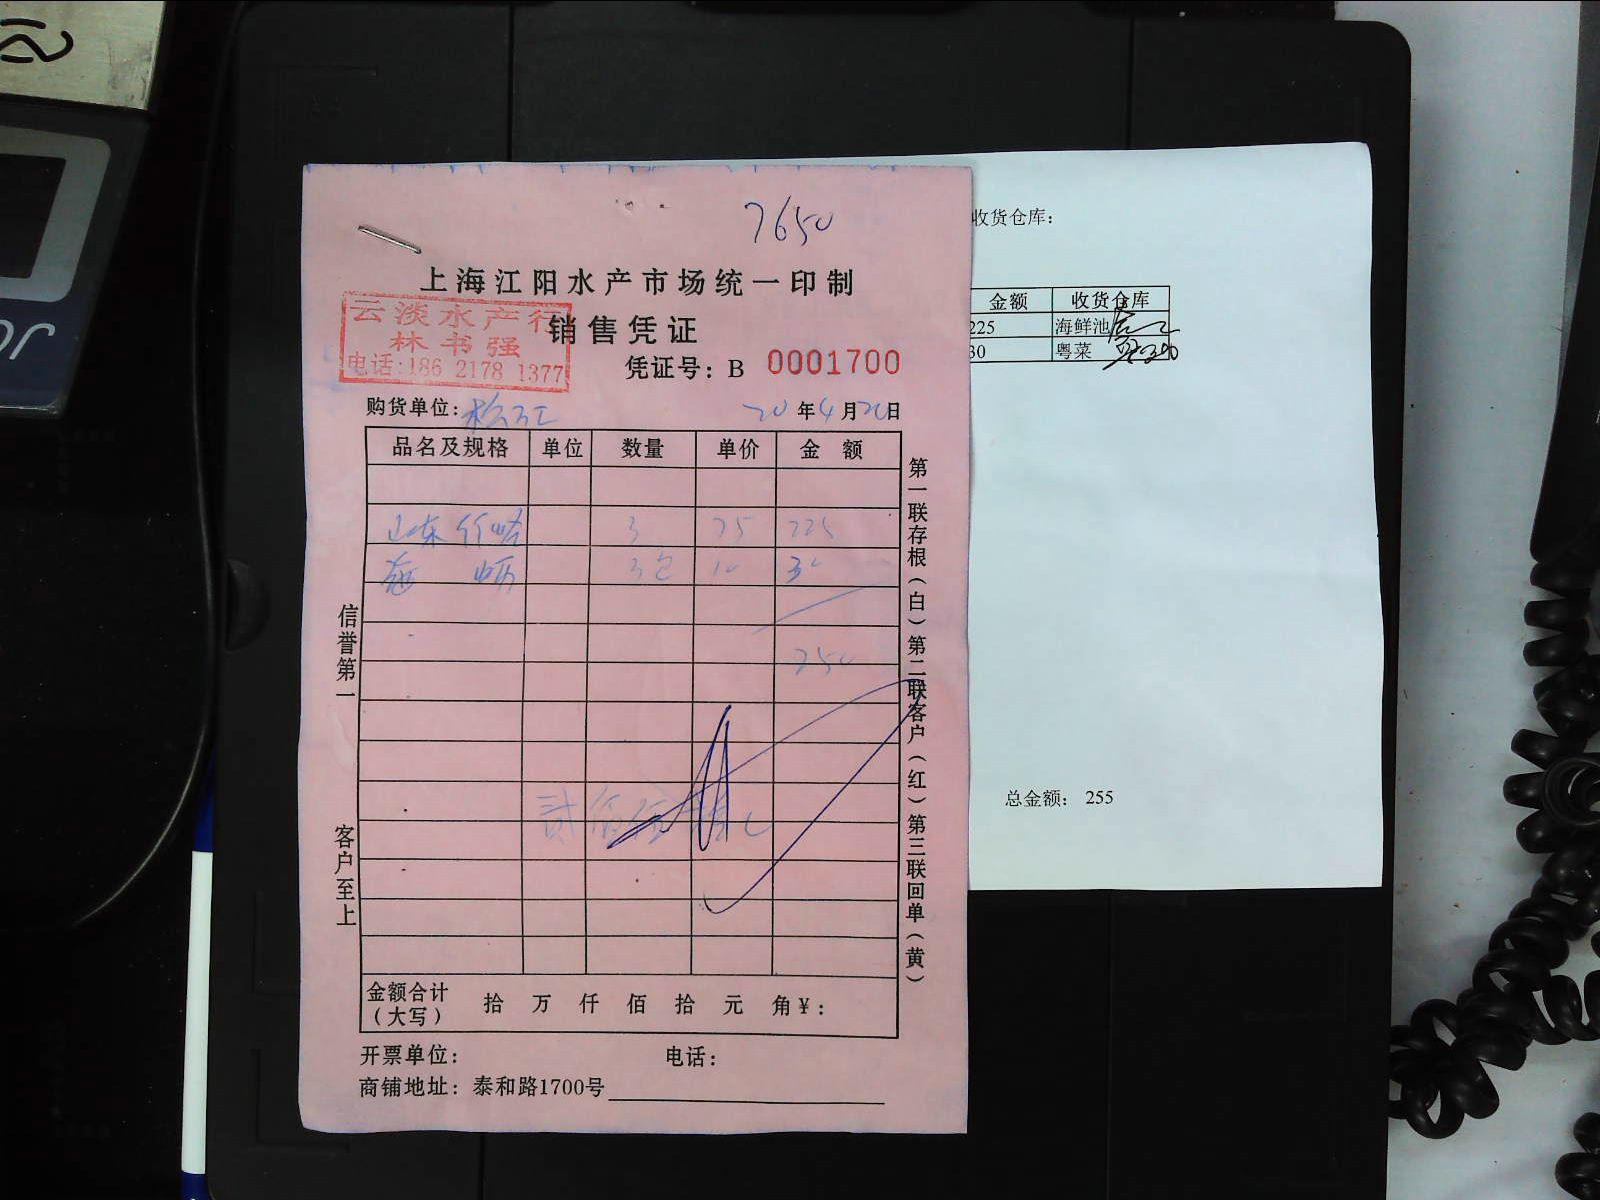 7650
上海江阳水产市场统一印制
云淡水产行
林书强
电话:186 2178 1377
销售凭证
凭证号：B 0001700
购货单位：松江 20年4月20日
品名及规格 单位 数量 单价 金额
山东竹蛏 3 75 225
海蛎 3包 10 30
信誉第一
客户至上
第一联存根（白）第二联客户（红）第三联回单（黄）
金额合计（大写） 拾 万 仟 佰 拾 元 角 ¥：
开票单位： 电话：
商铺地址：泰和路1700号
收货仓库：
金额 收货仓库
225 海鲜池
30 粤菜
总金额： 255